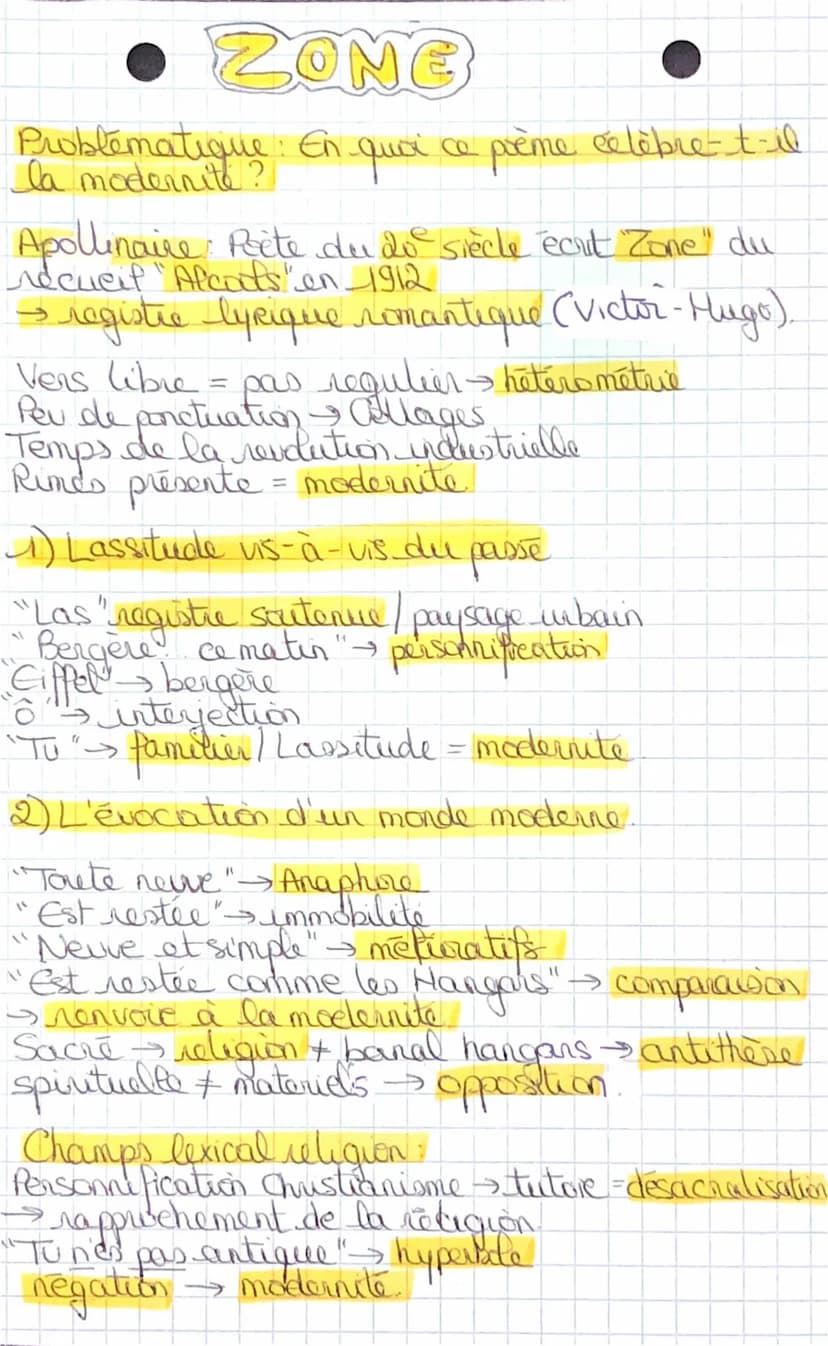 ZONE
Problématique : En quoi ce poème célèbre-t-il
la modernité ?
Apollinaire : Poète du 20e siècle écrit "Zone" du
recueil "Alcools" en 1912
→ registre lyrique romantique (Victor-Hugo).
Vers libre = pas regulier → hétérométrie
Peu de ponctuation → Collages
Temps de la revolution industrielle
Rimes présente = modernité
1) Lassitude vis-à-vis du passé
"Las" registre soutenue / paysage urbain
"Bergère.. ce matin" → personnification
"Eiffel" → bergère
"ô" → interjection
"Tu" → familier / Lassitude = modernité
2) L'évocation d'un monde moderne.
"Toute neuve" → Anaphore
"Est restée" → immobilité
"Neuve et simple" → mélioratifs
"Est restée comme les Hangars" → comparaison
→ renvoie à la modernité.
Sacré → religion ≠ banal hangars → antithèse
spirituelle ≠ materiels → opposition.
Champs lexical religion :
Personnification Christianisme → tutoie = désacralisation
→ rapprochement de la religion.
"Tu n'es pas antique" → hyperbole
négation → modernité.